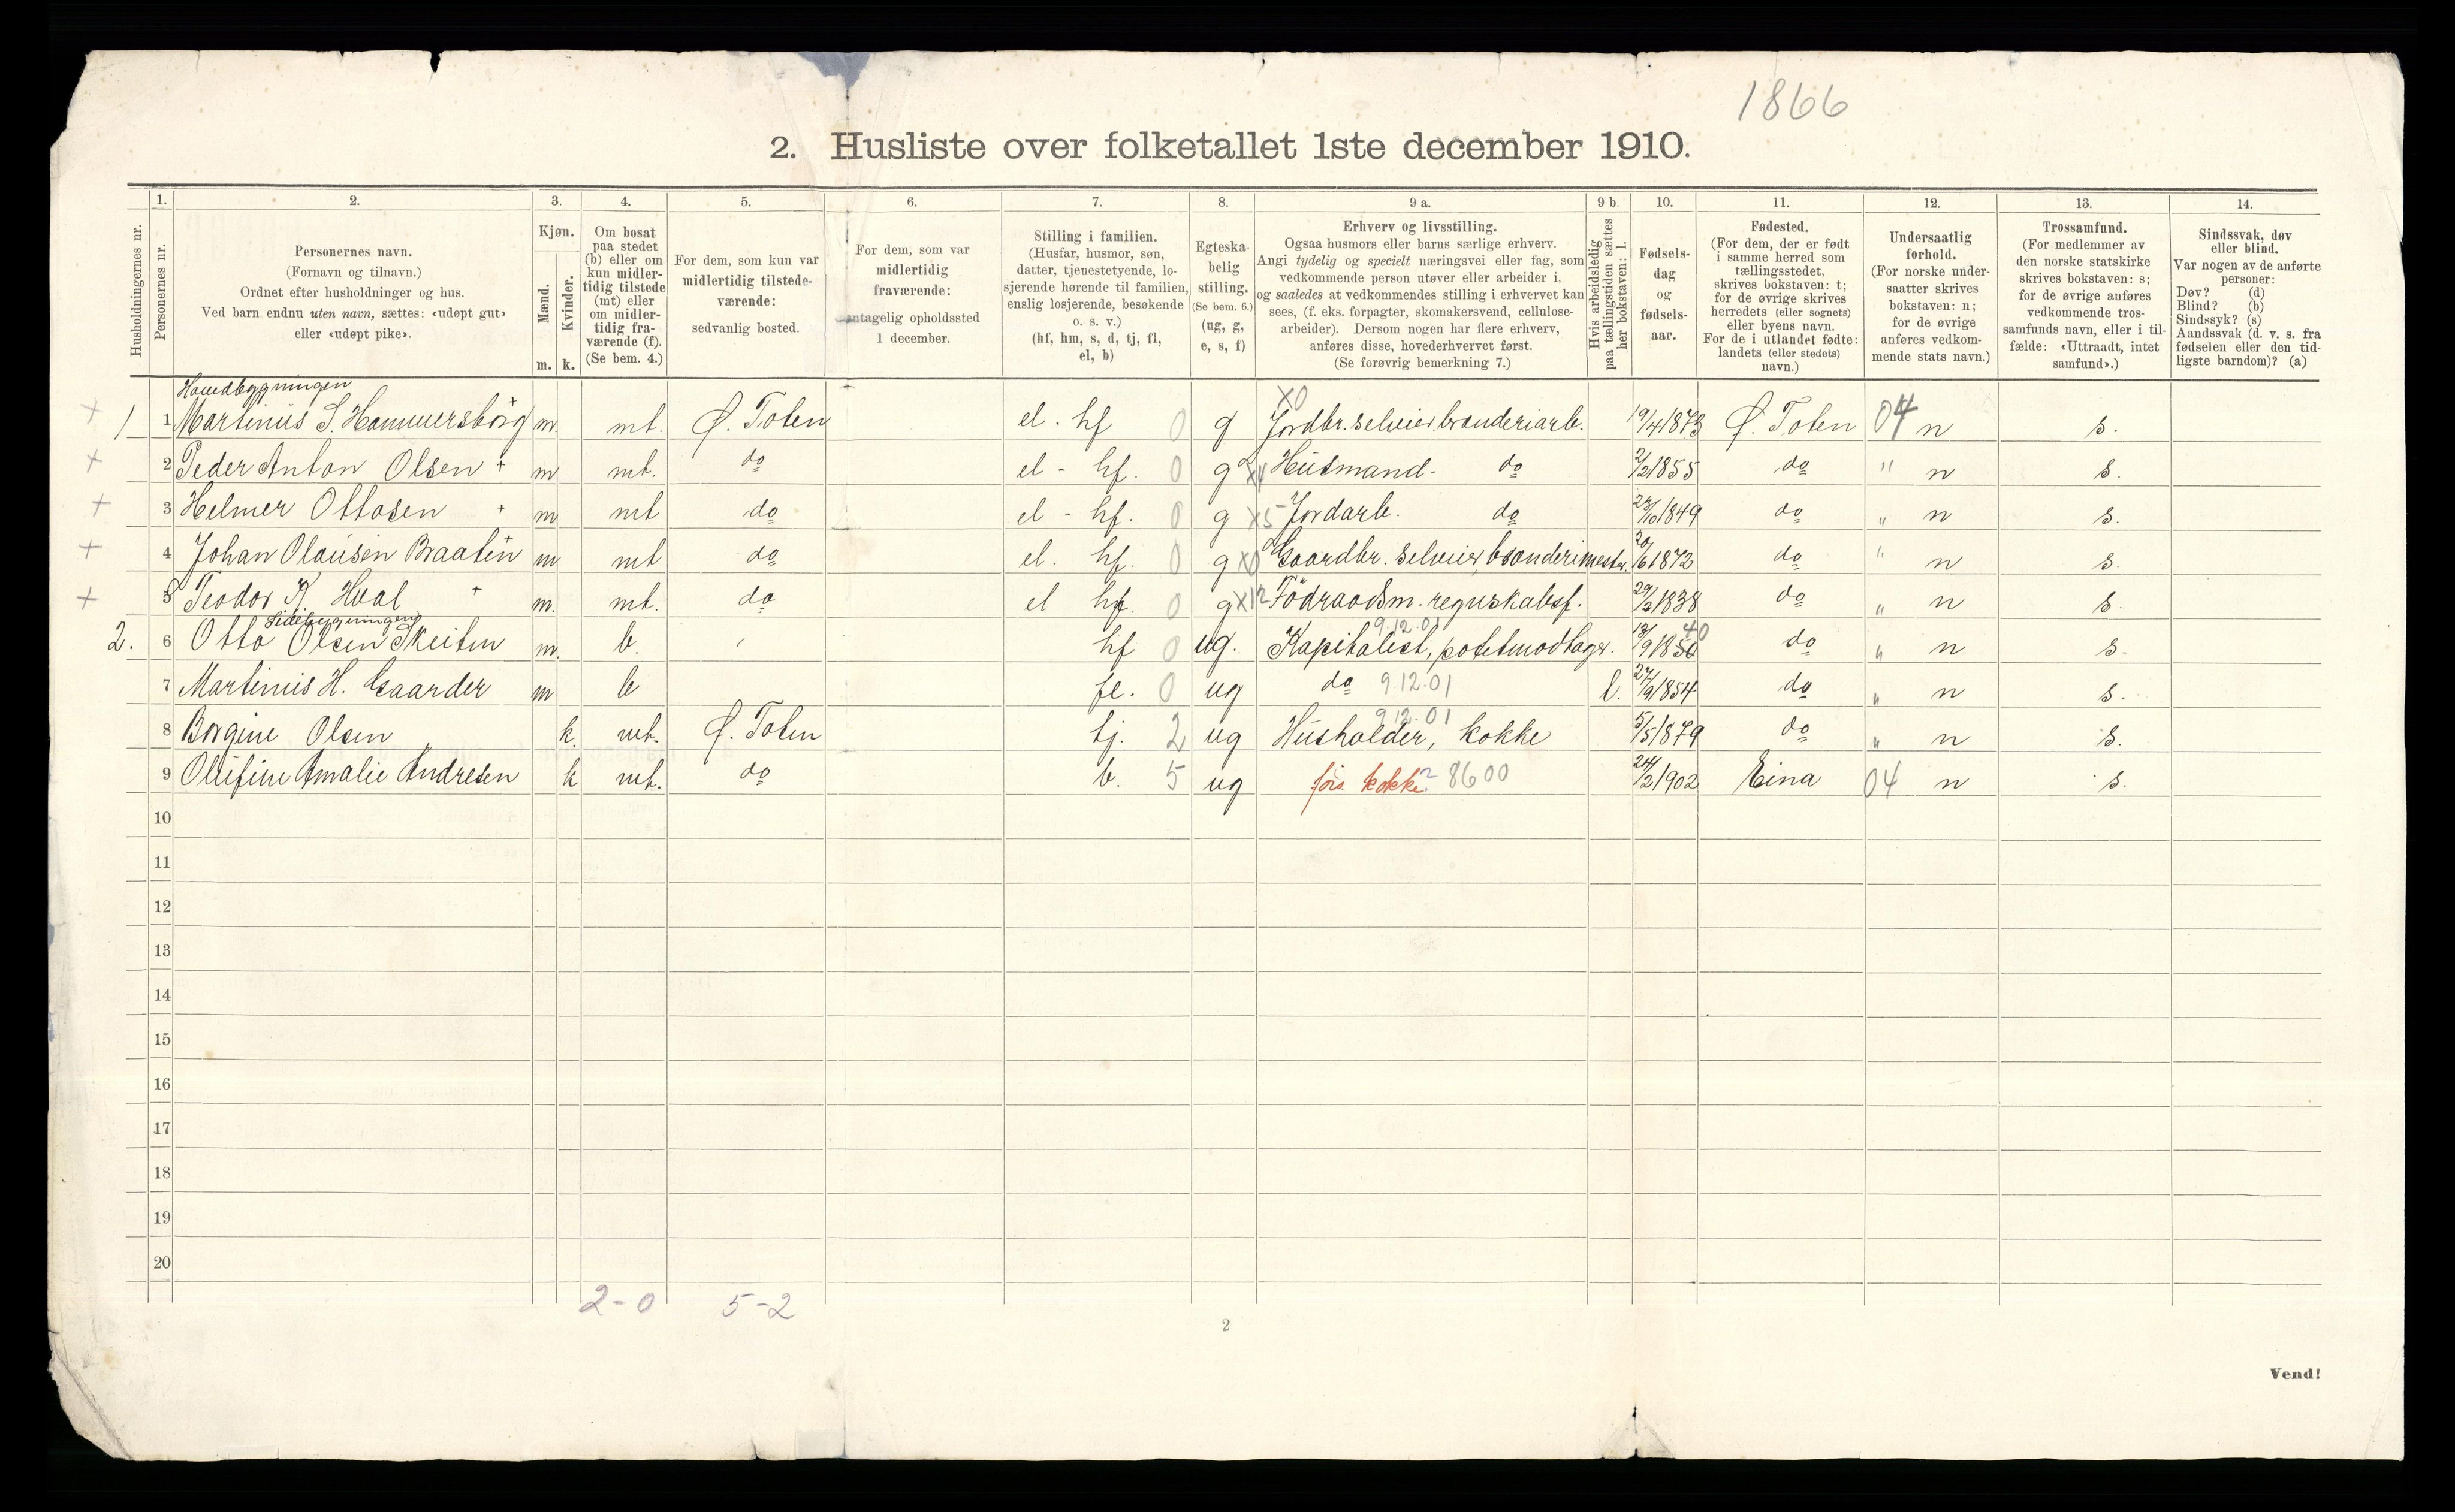 1866
2. Husliste over folketallet 1ste december 1910.
Husholdningernes nr.
1.
Personernes nr.
2.
Personernes navn.
(Fornavn og tilnavn.)
Ordnet efter husholdninger og hus.
Ved barn endnu uten navn, sættes: «udøpt gut»
eller «udøpt pike».
3.
Kjøn.
Mænd.
Kvinder.
m. k.
4.
Om bosat
paa stedet
(b) eller om
kun midler-
tidig tilstede
(mt) eller
om midler-
tidig fra-
værende (f).
(Se bem. 4.)
5.
For dem, som kun var
midlertidig tilstede-
værende:
sedvanlig bosted.
6.
For dem, som var
midlertidig
fraværende:
antagelig opholdssted
1 december.
7.
Stilling i familien.
(Husfar, husmor, søn,
datter, tjenestetyende, lo-
sjerende hørende til familien,
enslig losjerende, besøkende
o. s. v.)
(hf, hm, s, d, tj, fl,
el, b)
8.
Egteska-
belig
stilling.
(Se bem. 6.)
(ug, g,
e, s, f)
9 a.
Erhverv og livsstilling.
Ogsaa husmors eller barns særlige erhverv.
Angi tydelig og specielt næringsvei eller fag, som
vedkommende person utøver eller arbeider i,
og saaledes at vedkommendes stilling i erhvervet kan
sees, (f. eks. forpagter, skomakersvend, cellulose-
arbeider). Dersom nogen har flere erhverv,
anføres disse, hovederhvervet først.
(Se forøvrig bemerkning 7.)
9 b.
Hvis arbeidsledig
paa tællingstiden sættes
her bokstaven: l.
10.
Fødsels-
dag
og
fødsels-
aar.
11.
Fødested.
(For dem, der er født
i samme herred som
tællingsstedet,
skrives bokstaven: t;
for de øvrige skrives
herredets (eller sognets)
eller byens navn.
For de i utlandet fødte:
landets (eller stedets)
navn.)
12.
Undersaatlig
forhold.
(For norske under-
saatter skrives
bokstaven: n;
for de øvrige
anføres vedkom-
mende stats navn.)
13.
Trossamfund.
(For medlemmer av
den norske statskirke
skrives bokstaven: s;
for de øvrige anføres
vedkommende tros-
samfunds navn, eller i til-
fælde: «Uttraadt, intet
samfund».)
14.
Sindssvak, døv
eller blind.
Var nogen av de anførte
personer:
Døv? (d)
Blind? (b)
Sindssyk? (s)
Aandssvak (d. v. s. fra
fødselen eller den tid-
ligste barndom)? (a)
Hovedbygningen
+ 1 1 Martinus S. Hammersborg + m. mt. Ø. Toten el. hf 0 g X0 Jordbr. selveier, brænderiarb. 19/4 1873 Ø. Toten 04 n s.
+ 2 Peder Anton Olsen + m mt. do el - hf. 0 g X4 Husmand - do 2/2 1855 do " n s.
+ 3 Helmer Ottosen + m mt do el - hf. 0 g X5 Jordarb. do /10 1849 do " n s.
+ 4 Johan Olausen Braaten m mt do el. hf. 0 g X0 Gaardbr. selveier, brænderimester. 20/6 1872 do " n s.
+ 5 Teodor K Hval + m. mt. do el hf. 0 g X12 Födraadsm. regnskabsf. 29/2 1838 do " n s.
Sidebygningen
2. 6 Otto Olsen Skeiten m. b. hf 0 ug. Kapitalist, potetmodtager. 9.12.01 13/9 1850 40 do " n s.
7 Martinius H. Gaarder m b fl. 0 ug do 9.12.01 l. 27/9 1854 do " n s.
8 Borgine Olsen k. mt. Ø. Toten tj. 2 ug Husholder, kokke 9.12.01 5/5 1879 do " n s.
9 Olufine Amalie Andresen k mt. do b. 5 ug fors. kokke? 8600 24/2 1902 Eina 04 n s.
10
11
12
13
14
15
16
17
18
19
20
2-0 5-2
2
Vend!